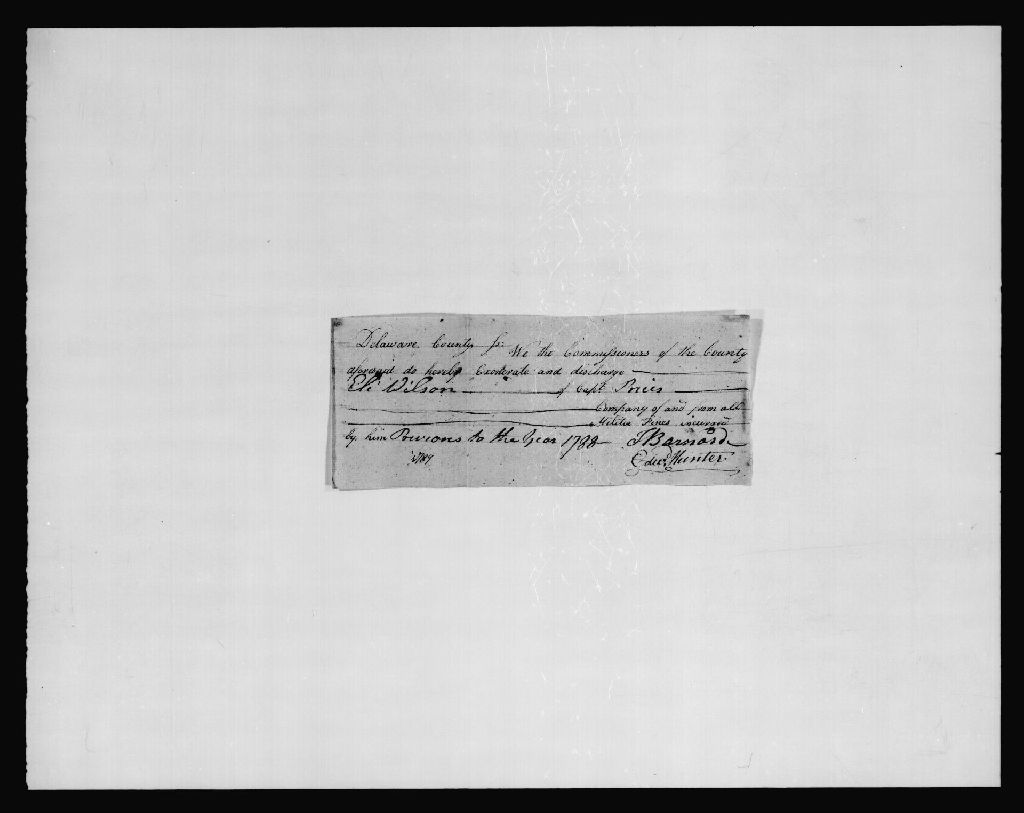 Delaware County ss: We the Commissioners of the County
aforesaid do hereby Exonerate and discharge
Eli Wilson of Capt. Prices
Company of and from all
Militia Fines incurred
by him Previous to the Year 1788
J Barnard
Edwd. Hunter